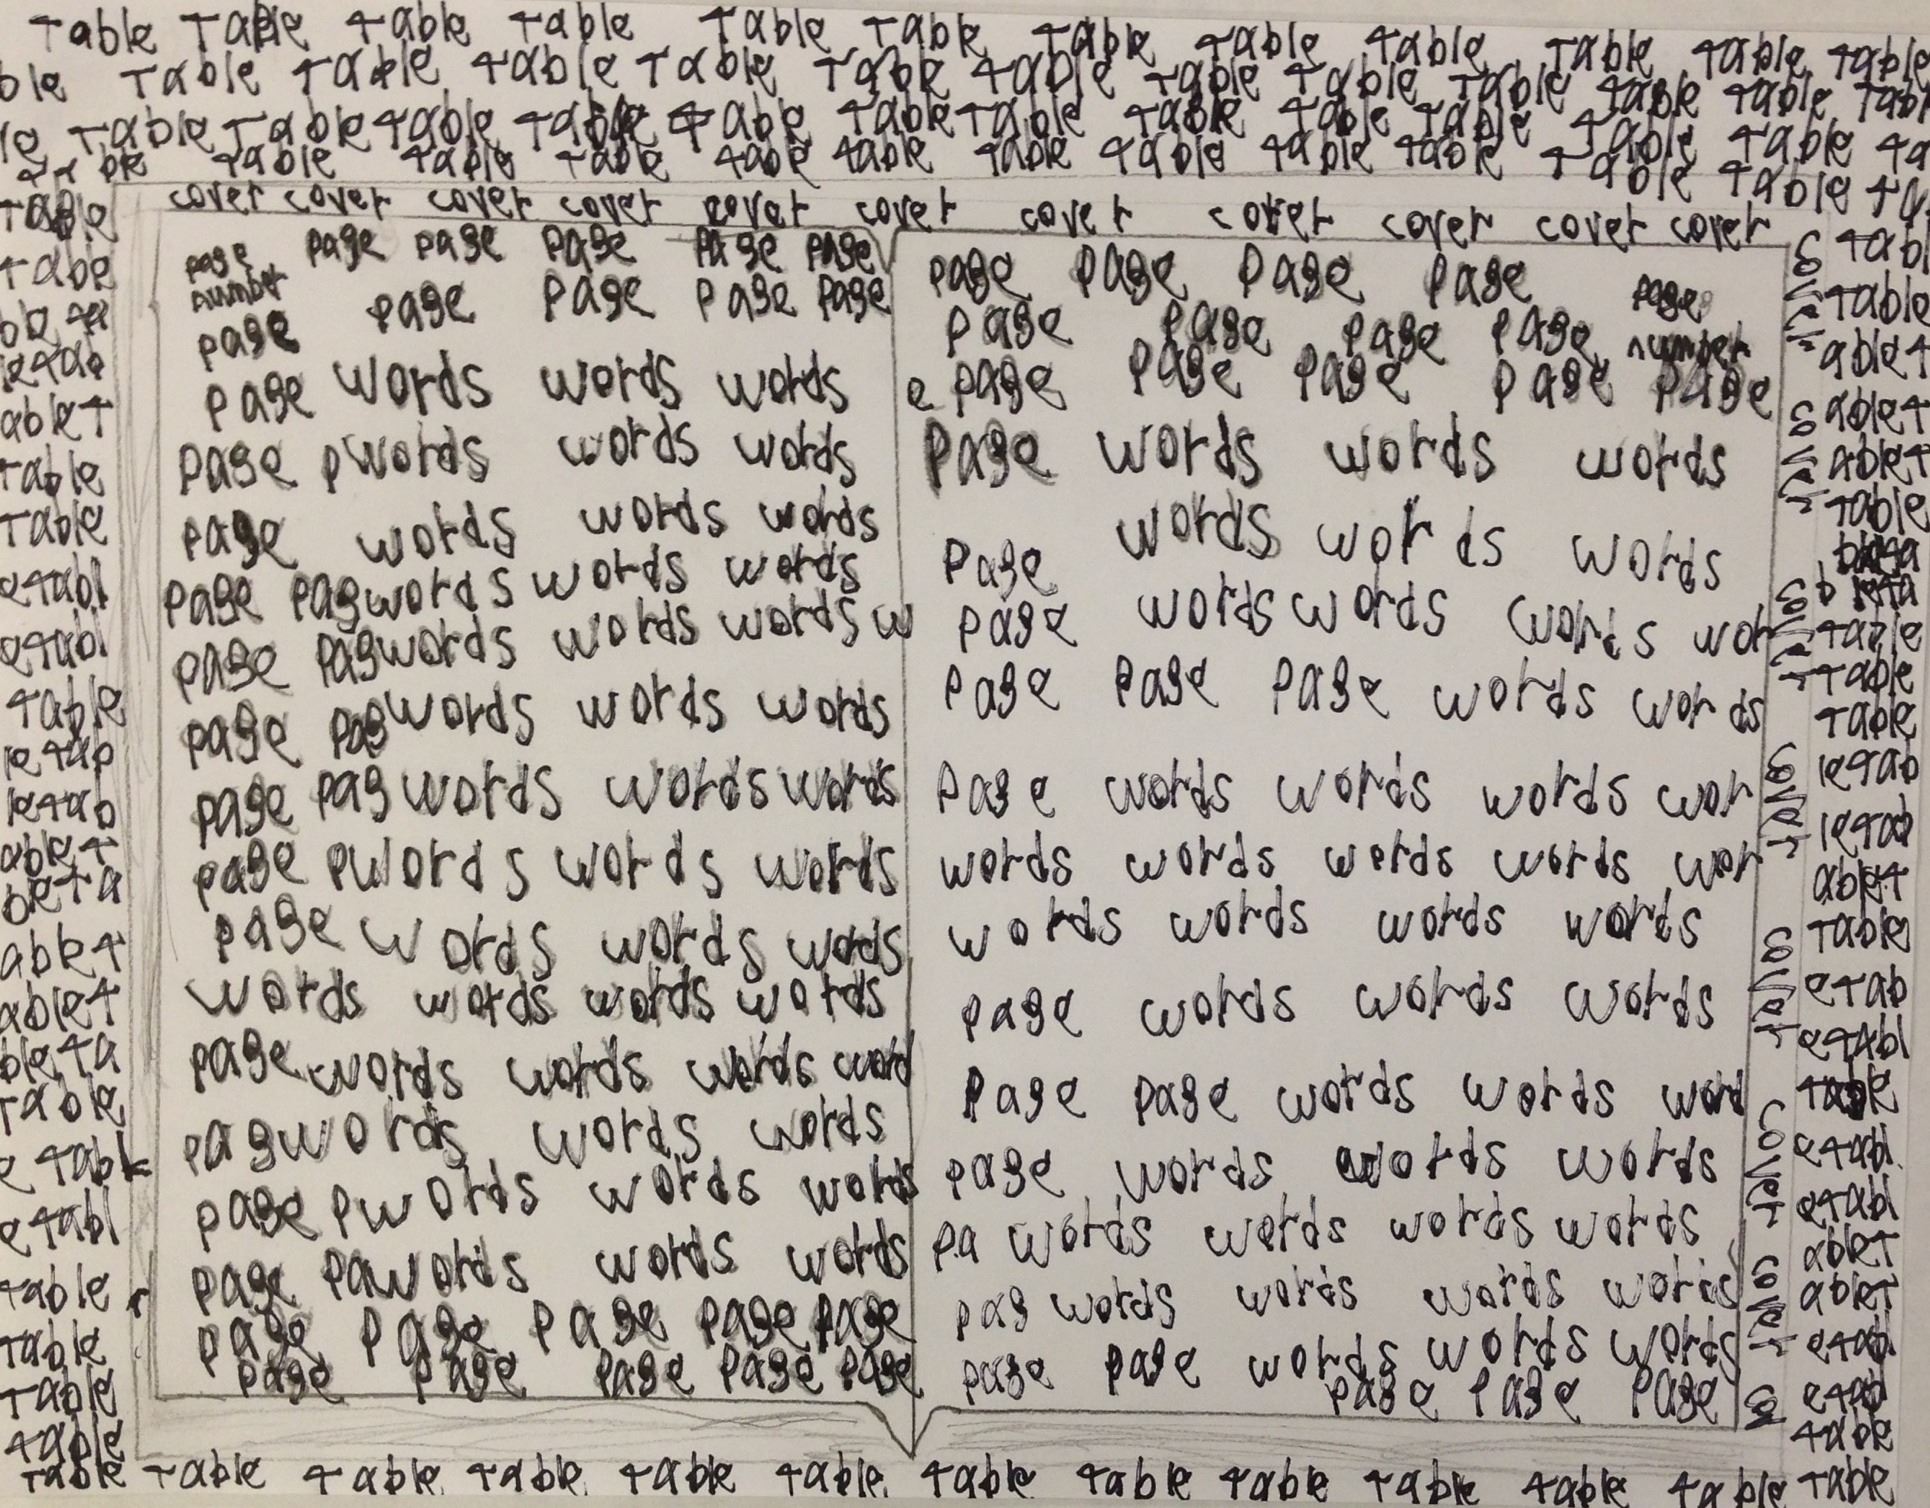 Table Table Table Table Table Table Table Table Table Table Table Table
ble Table Table Table Table Table Table Table Table Table Table Table Tabl
le Table Table Table Table Table Table Table Table Table Table Table Table Ta
ble Table Table Table Table Table Table Table Table Table Table Table Ta
cover cover cover cover cover cover cover cover cover cover cover
page page page page page page
number
page page page page page
page words words words
page pwords words words
page words words words
page pagwords words words
page pagwords words words w
page pagwords words words
page pagwords words words
page pwords words words
page words words words
words words words words
page words words words word
pagwords words words
page pwords words words
page pawords words words
page page page page page
page page page page page
page page page page page
page page page page number
e page page page page page
page words words words
page words words words
page words words words wor
page page page words words
page words words words wor
words words words words wor
words words words words
page words words words
page page words words word
page words words words
pa words words words words
pag words words words words
page page words words words
page page page
cover
cover
cover
cover
cover
cover
cover
co
Table
Table
able
ablet
Table
Table
etabl
etabl
Table
letab
letab
ablet
bleta
ablet
ablet
bleta
Table
e table
etabl
table
Table
Table
Table
Tabl
Table
ablet
ablet
ablet
Table
bleta
Table
Table
Table
letab
letab
ablet
Table
etab
etabl
Table
etabl
etabl
ablet
ablet
etab
etab
Table
Table Table Table Table Table Table Table Table Table Table Table Table